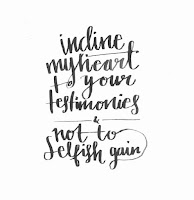 incline
my heart
to your
testimonies
&
not to
selfish gain